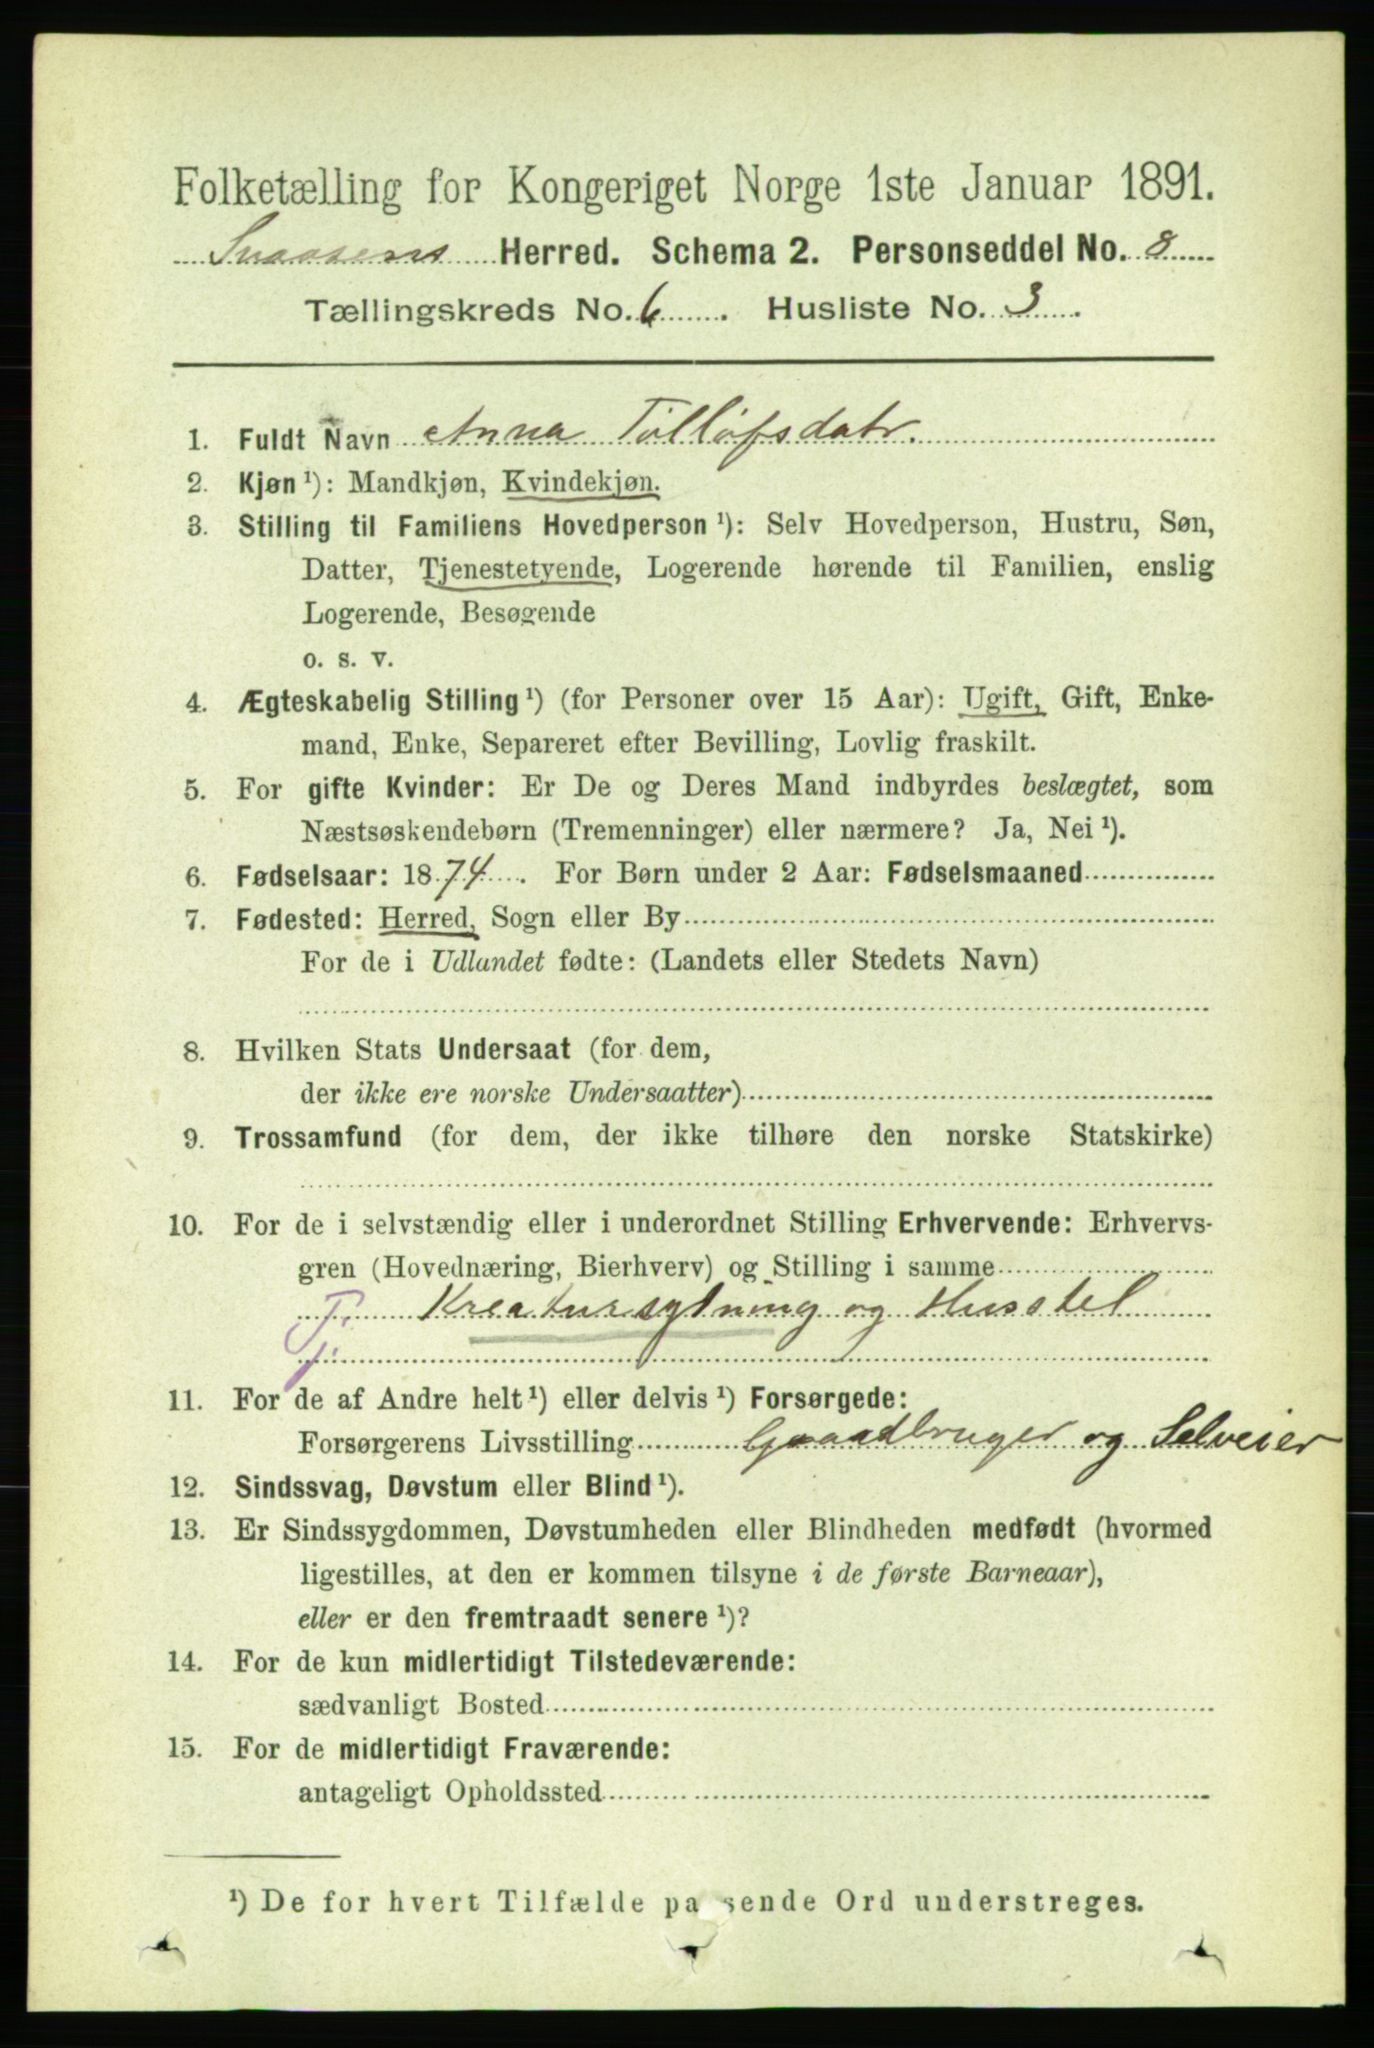 Folketælling for Kongeriget Norge 1ste Januar 1891.
Snaasens Herred. Schema 2. Personseddel No. 8
Tællingskreds No. 6. Husliste No. 3.
1. Fuldt Navn Anna Tolløfsdatr.
2. Kjøn ¹): Mandkjøn, Kvindekjøn.
3. Stilling til Familiens Hovedperson ¹): Selv Hovedperson, Hustru, Søn,
Datter, Tjenestetyende, Logerende hørende til Familien, enslig
Logerende, Besøgende
o. s. v.
4. Ægteskabelig Stilling ¹) (for Personer over 15 Aar): Ugift, Gift, Enke-
mand, Enke, Separeret efter Bevilling, Lovlig fraskilt.
5. For gifte Kvinder: Er De og Deres Mand indbyrdes beslægtet, som
Næstsøskendebørn (Tremenninger) eller nærmere? Ja, Nei ¹).
6. Fødselsaar: 1874. For Børn under 2 Aar: Fødselsmaaned
7. Fødested: Herred, Sogn eller By
For de i Udlandet fødte: (Landets eller Stedets Navn)
8. Hvilken Stats Undersaat (for dem,
der ikke ere norske Undersaatter)
9. Trossamfund (for dem, der ikke tilhøre den norske Statskirke)
10. For de i selvstændig eller i underordnet Stilling Erhvervende: Erhvervs-
gren (Hovednæring, Bierhverv) og Stilling i samme
Tj. Kreaturrygtning og Husstel
11. For de af Andre helt ¹) eller delvis ¹) Forsørgede:
Forsørgerens Livsstilling Gaardbruger og Selveier
12. Sindssvag, Døvstum eller Blind ¹).
13. Er Sindssygdommen, Døvstumheden eller Blindheden medfødt (hvormed
ligestilles, at den er kommen tilsyne i de første Barneaar),
eller er den fremtraadt senere ¹)?
14. For de kun midlertidigt Tilstedeværende:
sædvanligt Bosted
15. For de midlertidigt Fraværende:
antageligt Opholdssted
¹) De for hvert Tilfælde passende Ord understreges.